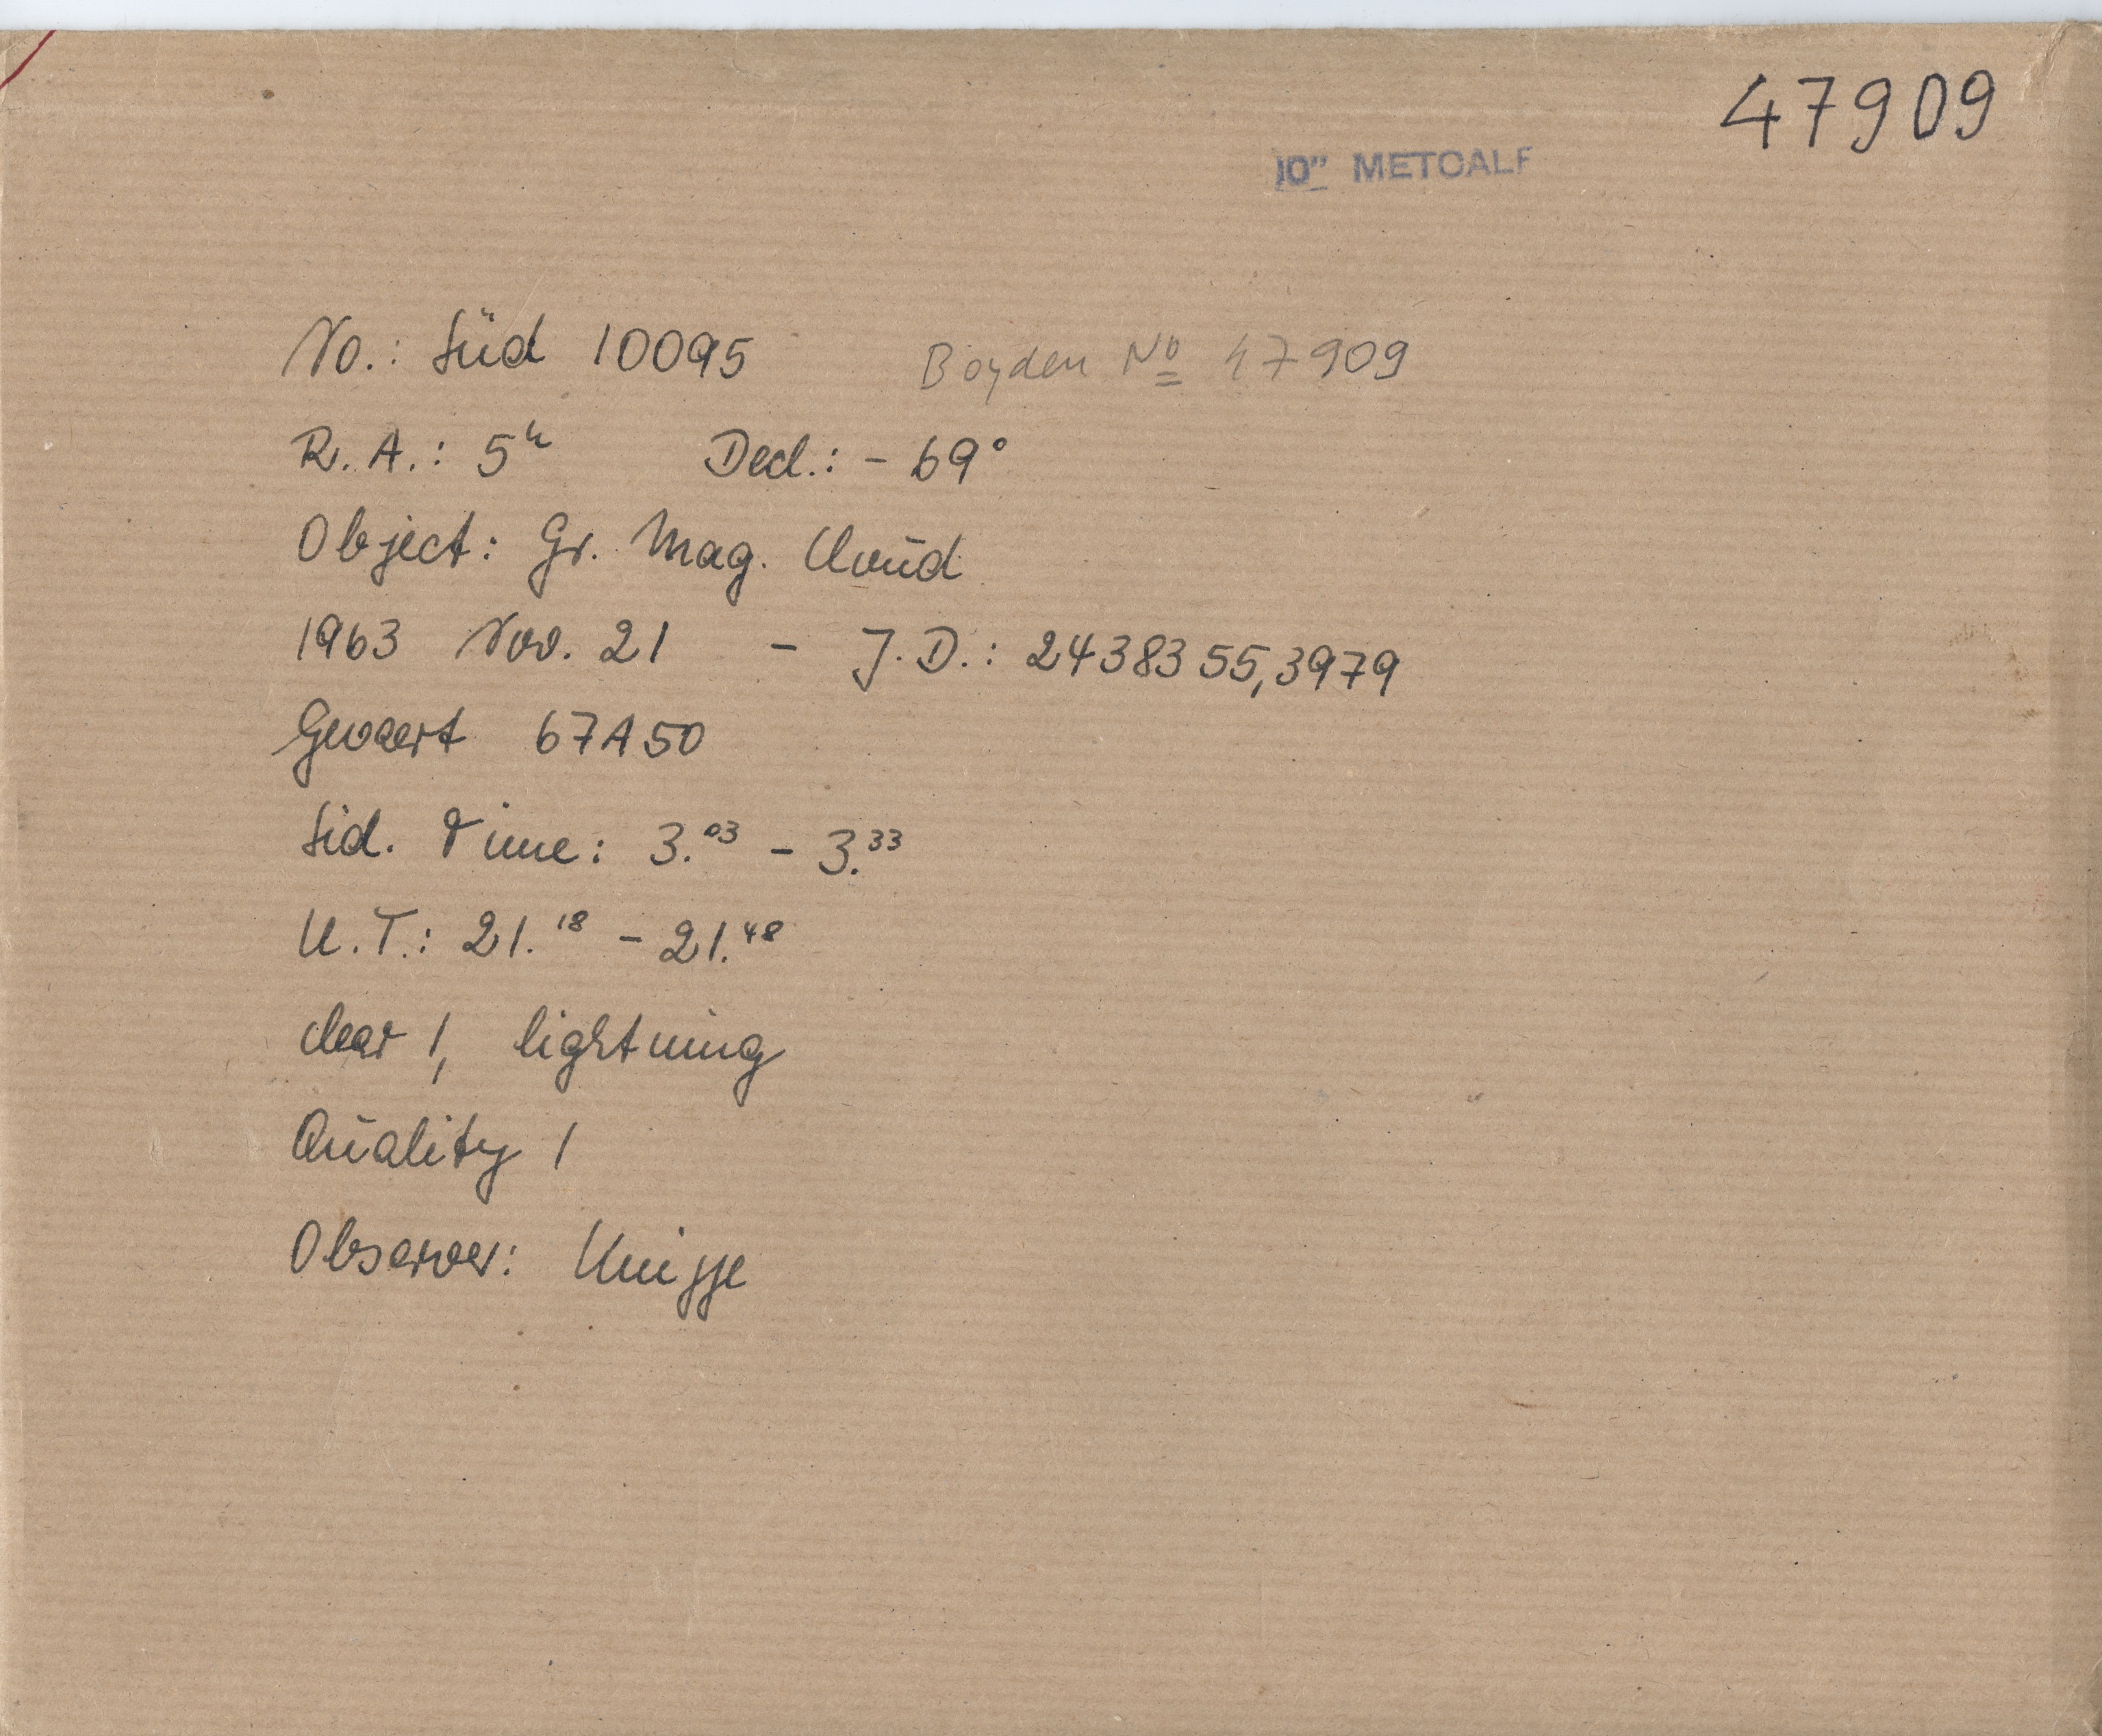 47909
10" METCALF
No.: Süd 10095 Boyden No 47909
R. A.: 5h Decl.: - 69°
Object: Gr. Mag. Cloud
1963 Nov. 21 - J. D.: 2438355,3979
Gevaert 67A50
Sid. Time: 3.03 - 3.33
U.T.: 21.18 - 21.48
clear 1, lightning
Quality 1
Observer: Knigge